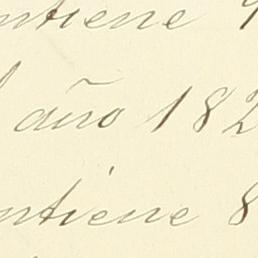 ntiene
año 182
ntiene 8